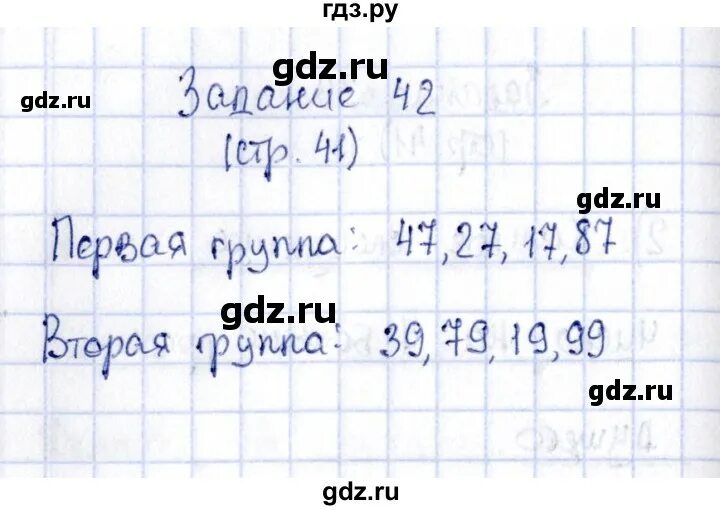 гдз.ру
gdz.ru
gdz.ru
Задание 42
(стр. 41)
gdz.ru
Первая группа: 47, 27, 17, 87
gdz.ru
Вторая группа: 39, 79, 19, 99
gdz.ru
gdz.ru